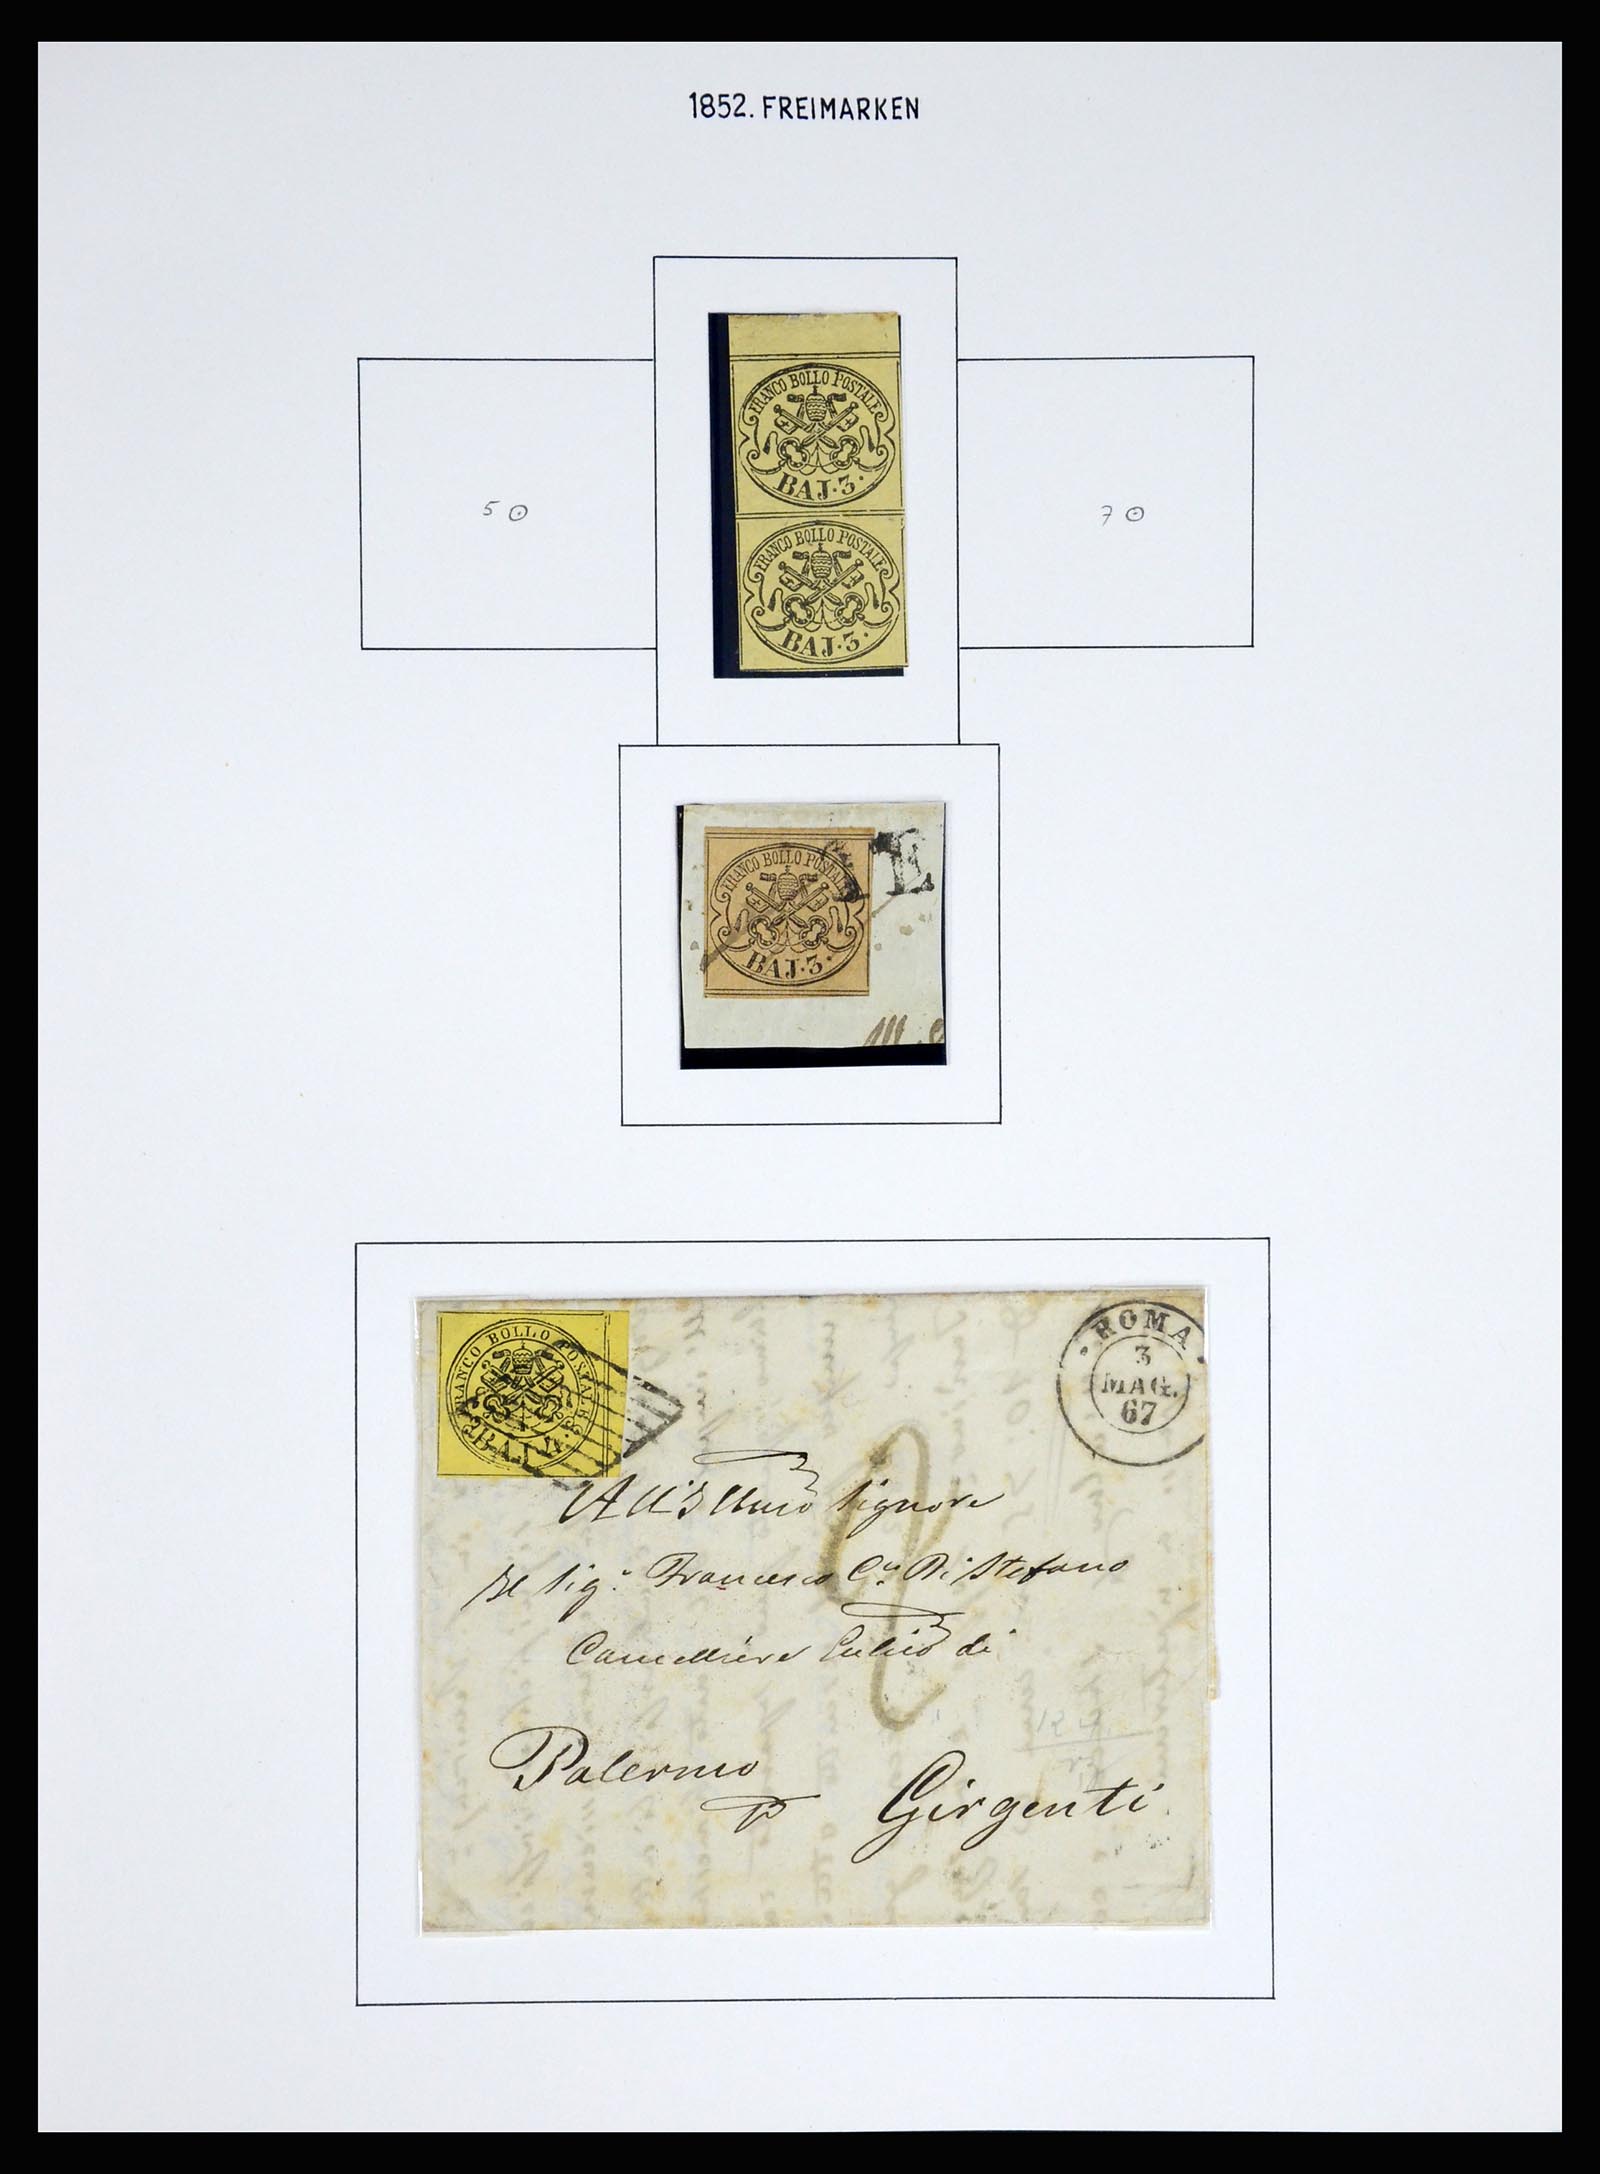 1852. FREIMARKEN
FRANCO BOLLO POSTALE
BAJ·3·
5
7
FRANCO BOLLO POSTALE
BAJ·3·
FRANCO BOLLO POSTALE
BAJ·3·
E
FRANCO BOLLO POSTALE
BAJ 4
ROMA
3
MAG.
67
All' Signore
Sig.r Francesco Di Stefano
Cancelliere di
Palermo
p
Girgenti